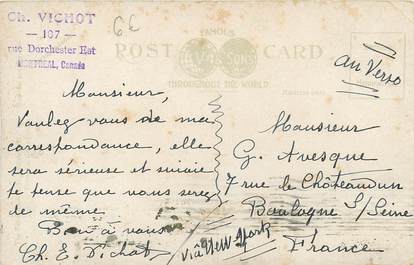 Ch. VICHOT
— 187 —
rue Dorchester Est
MONTREAL, Canada
6E
FAMOUS
POST CARD
& SONS
THROUGHOUT THE WORLD
au Verso
Monsieur,
Voulez vous de ma
correspondance, elle
sera sérieuse et suivie
je pense que vous serez
de même.
Bien à vous
Ch. E. Vichot
via New-York
Monsieur
G. Avesque
7 rue de Châteaudun
Boulogne S/Seine
France